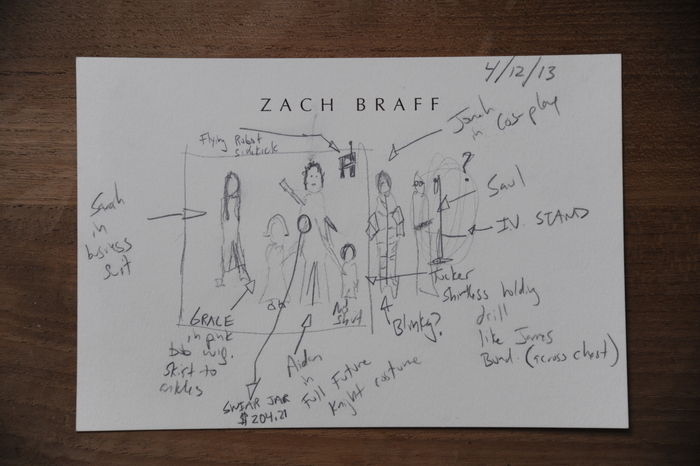 4/12/13
ZACH BRAFF
Flying Robot
sidekick
Jonah
in cosplay
?
Saul
I.V. STAND
Sarah
in
business
suit
GRACE
in pink
bob wig.
skirt to
ankles
SWEAR JAR
$204.21
Aidan
in
Full Future
Knight costume
No
Shirt
Blinky?
Tucker
shirtless holding
drill
like James
Bond. (across chest)